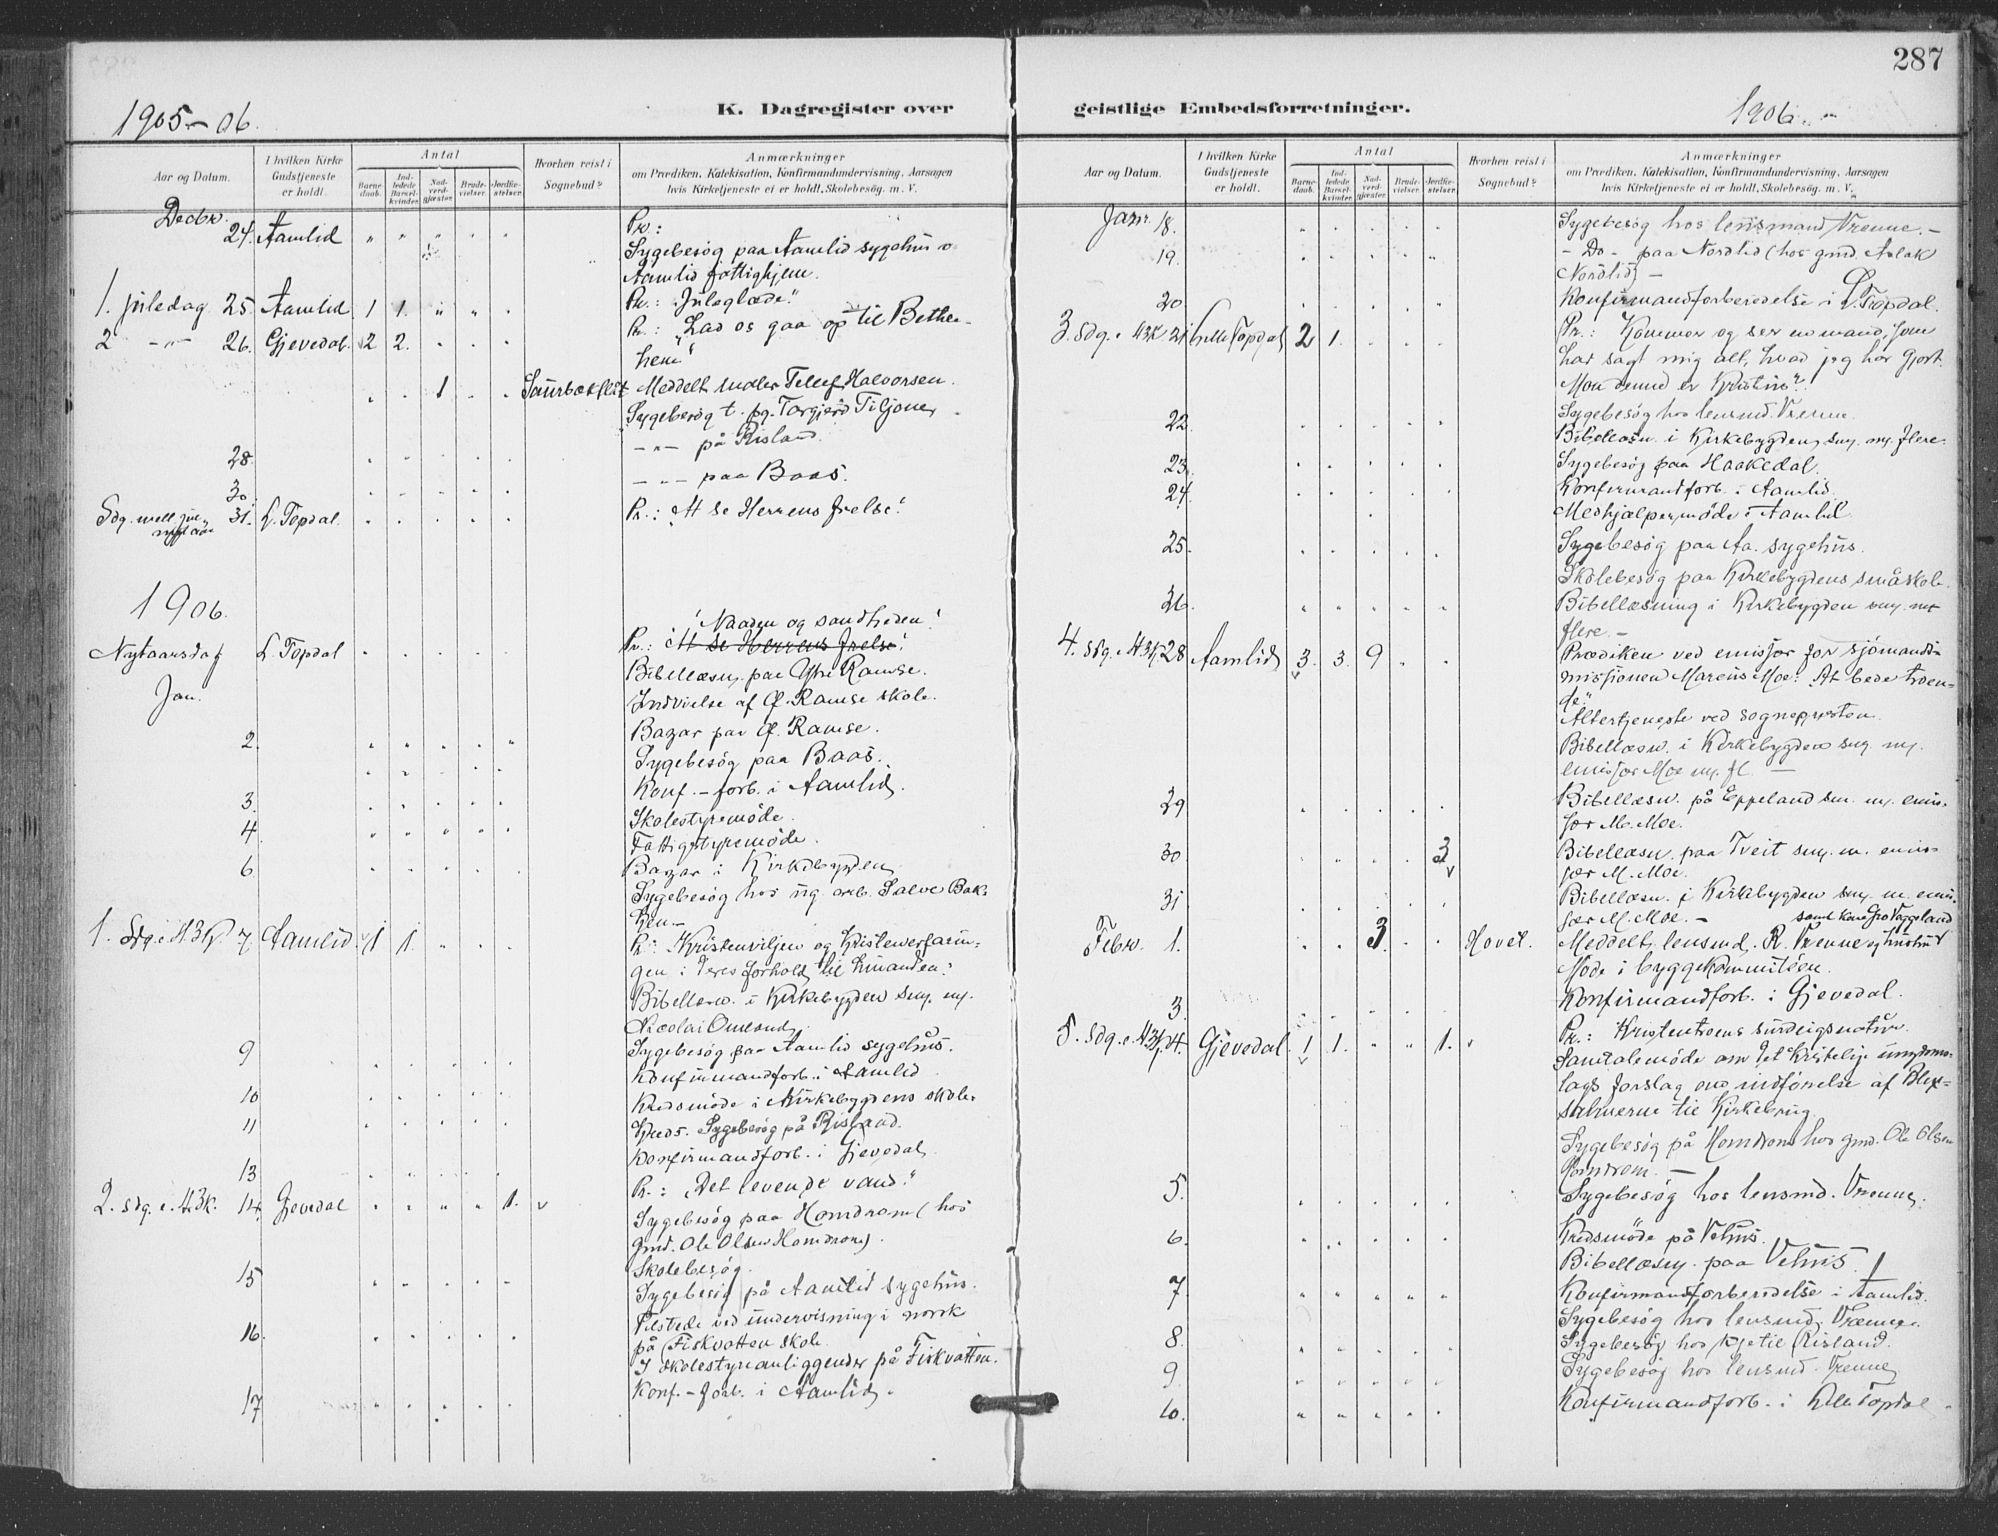 287
1905-06.
K. Dagregister over
geistlige Embedsforretninger.
1906
Aar og Datum.
I hvilken Kirke Gudstjeneste er holdt.
Antal
Barne-daab.
Ind-ledede Barsel-kvinder.
Nad-verd-gjæster.
Brude-vielser.
Jordfæ-stelser.
Hvorhen reist i Sognebud?
Anmærkninger
om Prædiken, Katekisation, Konfirmandundervisning, Aarsagen
hvis Kirketjeneste ei er holdt, Skolebesøg, m. V.
Decbr.
24. Aamlid " " " " " Pr.:
Sygebesög paa Aamlid sygehus o
Aamlid fattighjem.
1. juledag 25. Aamlid 1 1. " " " Pr.: "Juleglæde."
2 -"- 26. Gjevedal. 2 2. Pr.: "Lad os gaa op til Bethle-
hem"
1 Meddelt Tellef Halvorsen.
Sygebesög t. pg. Torgjerd Tiljone
28. -"- på Risland.
30. -"- paa Baas.
Sdg. mell. jul
nyt aar 31. L. Topdal. Pr.: "At se Herrens frelse."
1906.
"Naaden og sandheden."
Nytaarsdag L. Topdal Pr.: "At se Herrens frelse."
Jan. Bibellæsn. paa Ytre Ramse.
Indvielse af Ø. Ramse skole.
2. Bazar paa Ø. Ramse.
Sygebesög paa Baas.
3. Konf.-forb. i Aamlid.
4. Skolestyremöde.
Fattigstyremöde.
6 Bazar i Kirkebygden
Sygebesög hos ug. arb. Salve Bak-
ken -
1. Sdg. e. H3K 7. Aamlid. 1 1. Pr.: "Kristenviljen og Kristenerfarin-
gen i deres forhold til
Bibellæsn. i Kirkebygden sm. m.
Nicolai Omland.
9 Sygebesög paa Aamlid sygehus.
Konfirmandforb. i Aamlid
10 Kredsmöde i Kirkebygdens skole-
11 kreds. Sygebesög på Risland.
Konfirmandforb. i Gjevedal.
13 Pr.: "Det levende vand."
2. sdg. e. H.3k. 14. Gjevedal 1. v Sygebesög paa Homdrom (hos
gmd. Ole Olsen Homdrom).
15 Skolebesög.
Sygebesög på Aamlid sygehus.
Tilstede ved undervisning i norsk
16. på Fiskvatten skole.
I skolestyreanliggender på Fiskvatten.
17 Konf.-forb. i Aamlid.
Aar og Datum.
I hvilken Kirke Gudstjeneste er holdt.
Antal
Barne-daab.
Ind-ledede Barsel-kvinder.
Nad-verd-gjæster.
Brude-vielser.
Jordfæ-stelser.
Hvorhen reist i Sognebud?
Anmærkninger
om Prædiken, Katekisation, Konfirmandundervisning, Aarsagen
hvis Kirketjeneste ei er holdt, Skolebesøg, m. V.
Janr. 18. Sygebesög hos lensmand Vrenne. -
19. - Do - paa Nordlid (hos gmd. Aslak
Nordlid) -
20 Konfirmandforberedelse i L. Topdal.
3. sdg. e. H3K 21 Lille Topdal 2 1. Pr.: "Kommer og ser en mand, som
har sagt mig alt, hvad jeg har gjort.
Mon denne er Kristus".
22 Sygebesög hos lensmd. Vrenne.
Bibellæsn. i Kirkebygden sm. m. flere.
23 Sygebesög paa Haakedal.
24 Konfirmandforb. i Aamlid.
Medhjælpermöde i Aamlid
25. Sygebesög paa Aa. sygehus.
Skolebesög paa Kirkebygdens småskole.
26. Bibellæsning i Kirkebygden sm. m.
flere. -
4. Sdg. e. H3K 28 Aamlid 3. 3. 9 Prædiken ved emissær for sjömands-
missionen Marcus Moe: "At bede troen-
de."
Altertjeneste ved sognepresten.
Bibellæsn. i Kirkebygden sm. m.
emissær Moe m. fl. -
29 Bibellæsn. på Eppeland sm. m. emis-
sær M. Moe.
30 3 v Bibellæsn. paa Tveit sm. m. emis-
sær M. Moe.
31 Bibellæsn. i Kirkebygden sm. m. emis-
sær M. Moe. - samt kone Gro Vaggeland
Febr. 1. 3. Hovet. Meddelt lensmd. R. Vrenne og hustru
Möde i byggekommitéen.
3. Konfirmandforb. i Gjevedal.
5. Sdg. e. H3K 4. Gjevedal 1 1. " " 1. v Pr.: Kristentroens
Samtalemöde om det Kristelige ungdoms-
lags forslag om indförelse af Blix-
salmerne til Kirkebrug.
Sygebesög på Homdrom hos gmd. Ole Olsen
Homdrom. -
5. Sygebesög hos lensmd. Vrenne.
6. Kredsmöde på Vehus.
Bibellæsn. paa Vehus.
7 Konfirmandforberedelse i Aamlid.
Sygebesög hos lensmd. Vrenne.
8. Sygebesög hos Kjetil Risland.
9. Sygebesög hos lensmd. Vrenne
10. Konfirmandforb. i Lille Topdal.